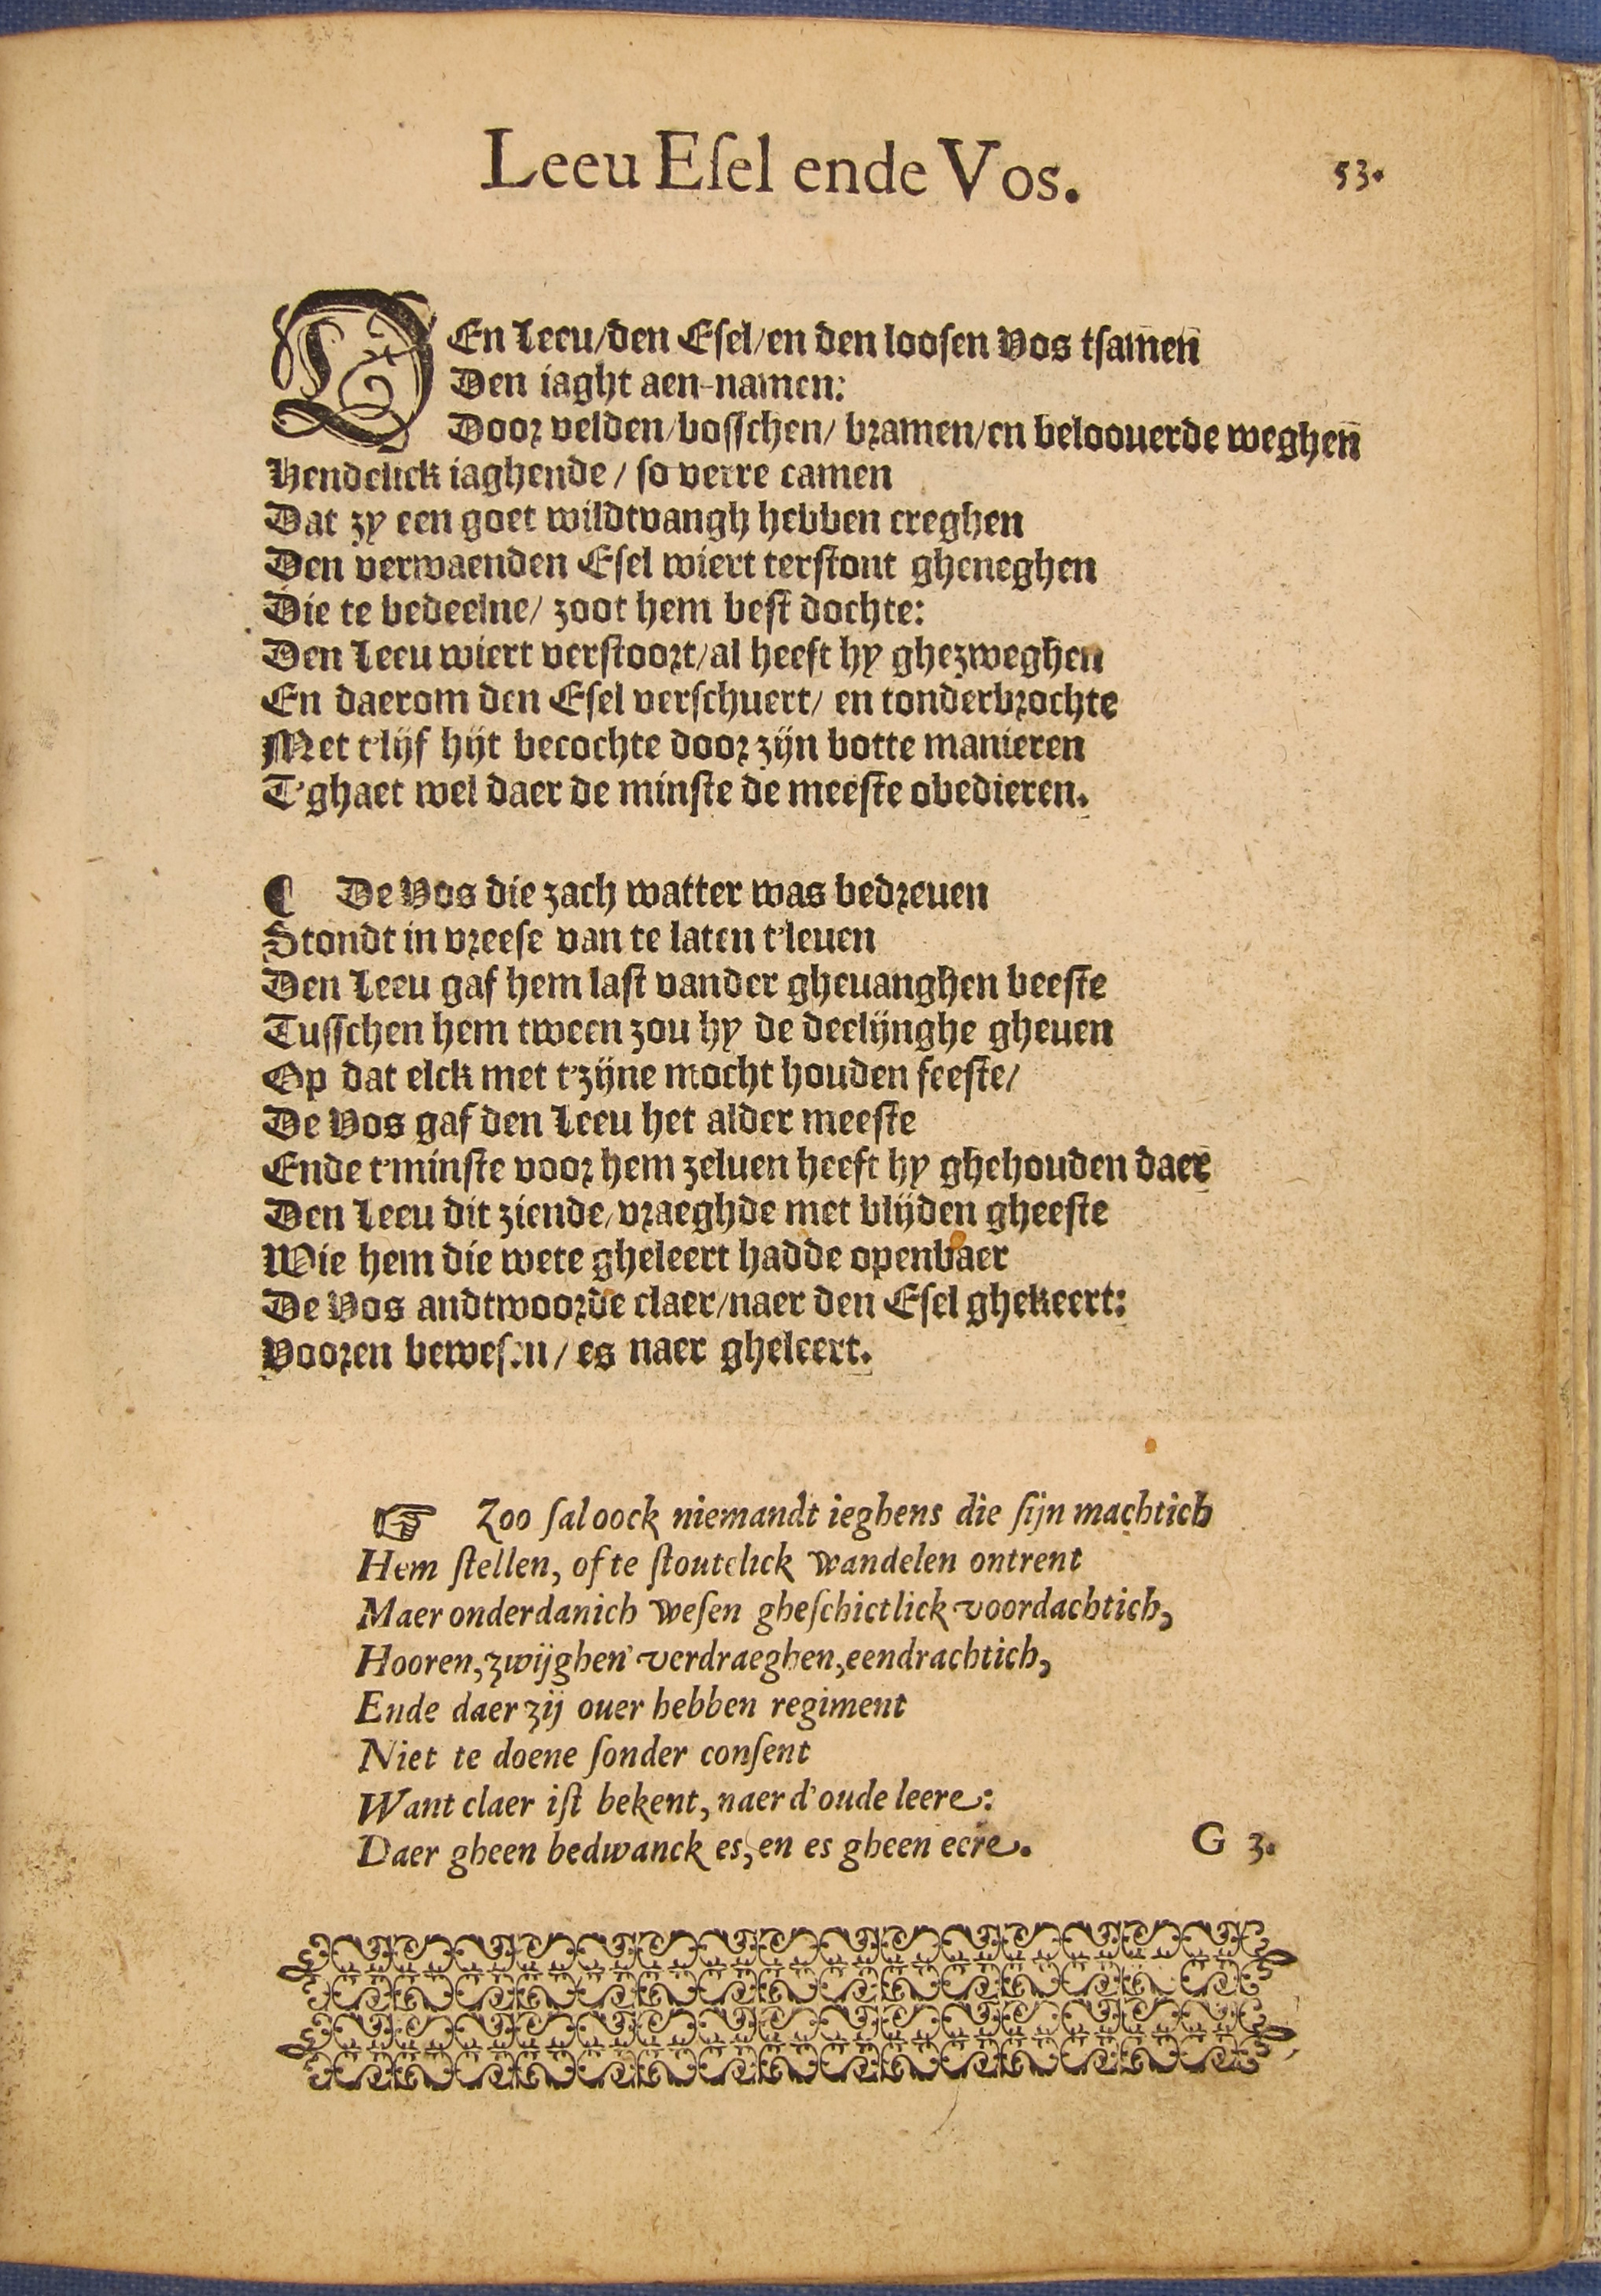 Leeu Eſel ende Vos.
53.
DEn Leeu/den Eſel/en den looſen Vos tſamen̄
Den iaght aen-namen:
Door velden/boſſchen/ bramen/en beloouerde weghen̄
Hendelick iaghende / so verre camen
Dat zy een goet wildtvangh hebben creghen
Den verwaenden Eſel wiert terſtont gheneghen
Die te bedeelne/ zoot hem beſt dochte:
Den Leeu wiert verſtoort/al heeft hy ghezweghen
En daerom den Eſel verſchuert/ en tonderbrochte
Met t'lijf hijt becochte door zijn botte manieren
T'ghaet wel daer de minſte de meeſte obedieren.
¶ De Vos die zach watter was bedreuen
Stondt in vreeſe van te laten t'leuen
Den Leeu gaf hem laſt vander gheuanghen beeſte
Tuſſchen hem tween zou hy de deelijnghe gheuen
Op dat elck met t'zijne mocht houden feeſte/
De Vos gaf den Leeu het alder meeſte
Ende t'minſte voor hem zeluen heeft hy ghehouden daer
Den Leeu dit ziende/vraeghde met blijden gheeſte
Wie hem die wete gheleert hadde openbaer
De Vos andtwoorde claer/naer den Eſel ghekeert:
Vooren beweſen/ es naer gheleert.
☞ Zoo ſal oock niemandt ieghens die ſijn machtich
Hem ſtellen, ofte ſtoutelick wandelen ontrent
Maer onderdanich weſen gheſchictlick voordachtich,
Hooren, zwijghen verdraeghen, eendrachtich,
Ende daer zij ouer hebben regiment
Niet te doene ſonder conſent
Want claer iſt bekent, naer d'oude leere:
Daer gheen bedwanck es, en es gheen eere.
G 3.